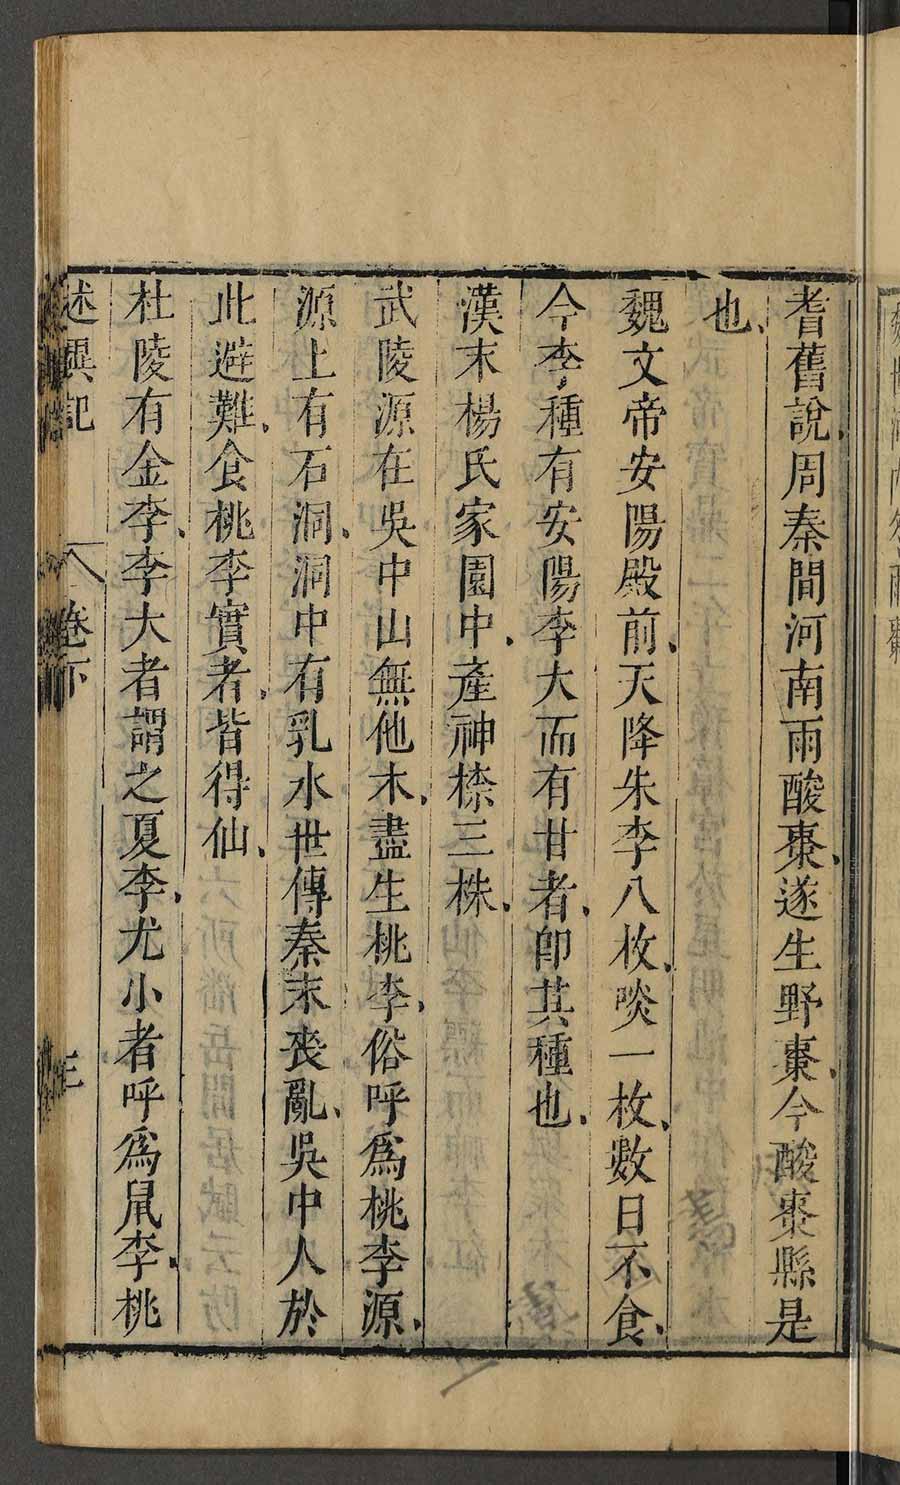 耆舊說、周秦間河南雨酸棗、遂生野棗、今酸棗縣是
也、
魏文帝安陽殿前、天降朱李八枚、啖一枚、數日不食、
今李種有安陽李大而有甘者、卽其種也、
漢末楊氏家園中、產神㮈三株、
武陵源在吳中山無他木、盡生桃李、俗呼爲桃李源、
源上有石洞、洞中有乳水世傳秦末喪亂、吳中人於
此避難、食桃李實者、皆得仙、
杜陵有金李、李大者謂之夏李、尤小者呼爲鼠李、桃
述異記
卷下
三